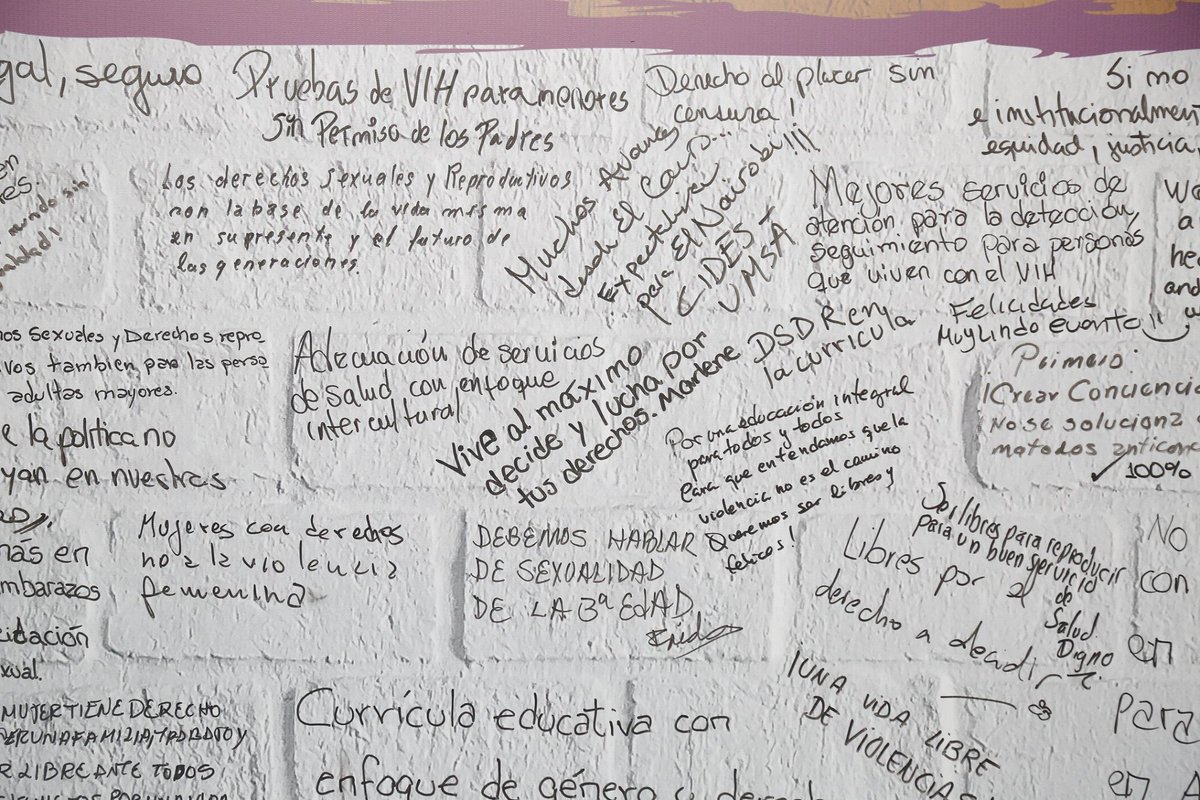 gal, seguro
Pruebas de VIH para menores
sin Permiso de los Padres
Derecho al placer sin
censura!
Si mo
e institucionalmen
equidad, justicia,
en
es.
mundo sin
Los derechos sexuales y Reproductivos
son la base de la vida misma
en su presente y el futuro de
las generaciones.
Muchos Avances
desde El Cairo...
Expectativa
para El Nairobi!!!
CIDES -
UMSA
Mejores servicios de
atención para la detección,
seguimiento para personas
que viven con el VIH
Felicidades
Muy Lindo evento!!
W
a
hea
and
nos Sexuales y Derechos repro
vos tambien para las perso
adultas mayores.
e la politica no
yan en nuestras
Adecuación de servicios
de Salud con enfoque
intercultural
Vive al máximo
decide y lucha por
tus derechos. Marlene
DSDR en
la curricula
Por una educación integral
para todos y todos
Para que entendamos que la
violencia no es el camino
Queremos ser libres y
felices!
Primero:
Crear Conciencia
No se soluciona
metodos antico
100%
más en
mbarazos
cidación
xual.
Mujeres con derechos
no a la violencia
femenina
DEBEMOS HABLAR
DE SEXUALIDAD
DE LA 3ª EDAD
Libres por el
derecho a decidir
Ser libres para reproducir
para un buen servicio
de
Salud
Digno
No
con
en
para
en
MUJER TIENE DERECHO
ER UNA FAMILIA, TRABAJO Y
R LIBRE ANTE TODOS
Currícula educativa con
enfoque de género y
¡UNA VIDA LIBRE
DE VIOLENCIAS